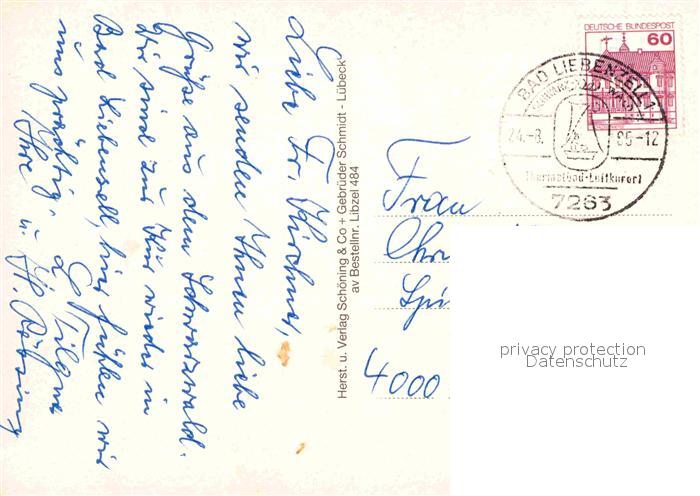 Liebe Fr. Kirchner,
wir senden Ihnen liebe
Grüße aus dem Schwarzwald.
Wir sind zur Kur wieder in
Bad Liebenzell, hier fühlen wir
uns prächtig.
Ihre
u. H.
Herst. u. Verlag Schöning & Co + Gebrüder Schmidt - Lübeck
av Bestellnr. Libzel 484
DEUTSCHE BUNDESPOST
60
BAD LIEBENZELL 1
SCHWARZWALD
24.-8. 85-12
Thermalbad-Luftkurort
7263
Frau
Chr
Spi
4000
privacy protection
Datenschutz